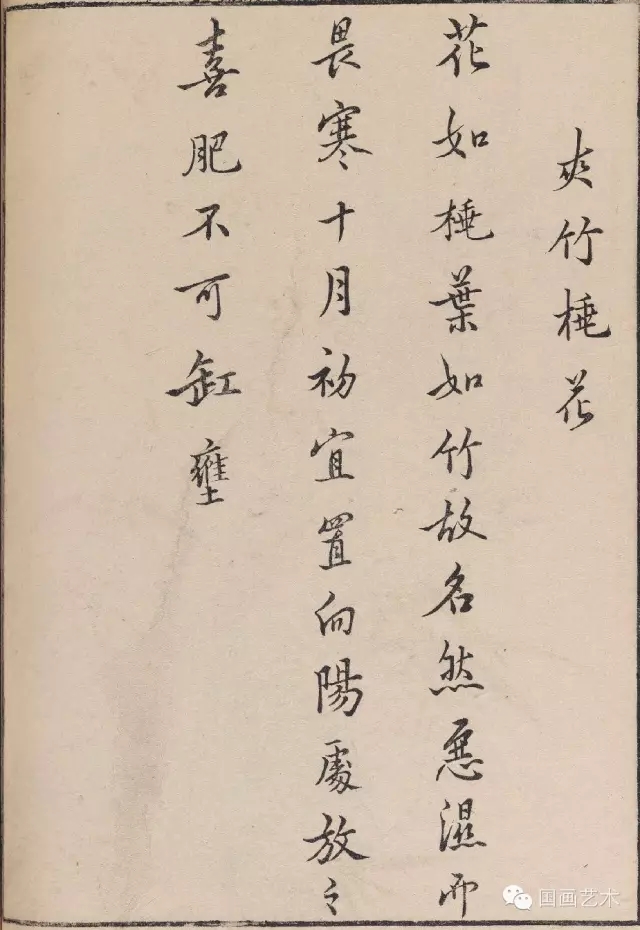 夾竹桃花
花如桃葉如竹故名然惡濕而
畏寒十月初宜置向陽處放之
喜肥不可缸壅
国画艺术